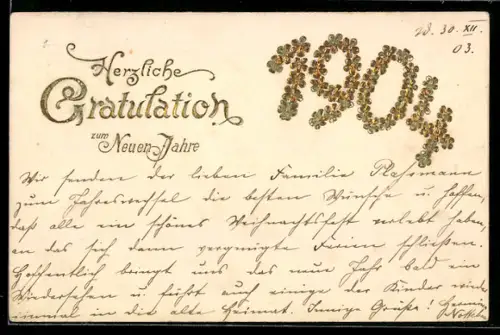 d. 30. XII.
03.
Herzliche
Gratulation
zum
Neuen Jahre
1904
Wir senden der lieben Familie Plassmann
zum Jahreswechsel die besten Wünsche u. hoffen,
daß alle ein schönes Weihnachtsfest verlebt haben,
an das sich dann vergnügte Ferien schließen.
Hoffentlich bringt uns das neue Jahr bald ein
Wiedersehen u. führt auch einige der Kinder wieder
einmal in die alte Heimat. Innige Grüße!